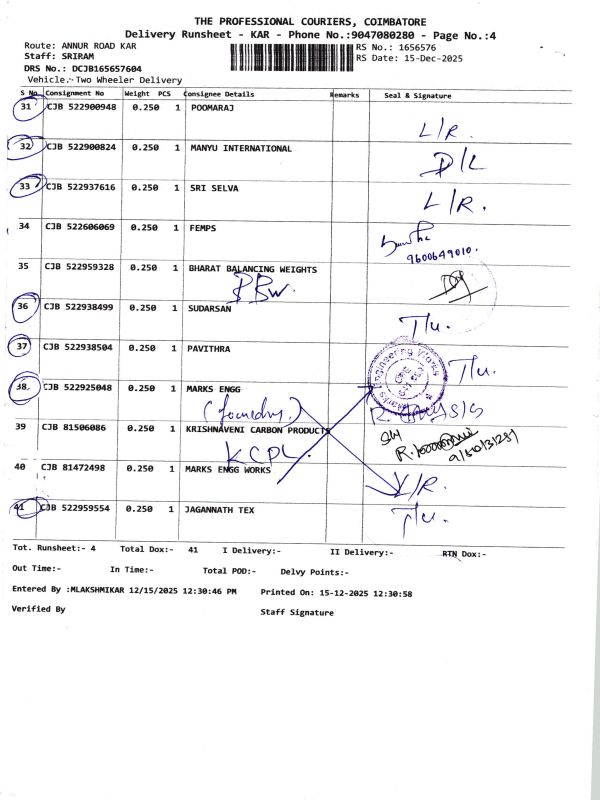 THE PROFESSIONAL COURIERS, COIMBATORE
Delivery Runsheet - KAR - Phone No.:9047080280 - Page No.:4
Route: ANNUR ROAD KAR RS No.: 1656576
Staff: SRIRAM RS Date: 15-Dec-2025
DRS No.: DCJB165657604
Vehicle:- Two Wheeler Delivery
S No. Consignment No Weight PCS Consignee Details Remarks Seal & Signature
31 CJB 522900948 0.250 1 POOMARAJ L/R.
32 CJB 522900824 0.250 1 MANYU INTERNATIONAL D/L
33 CJB 522937616 0.250 1 SRI SELVA L/R.
34 CJB 522606069 0.250 1 FEMPS
9600649010.
35 CJB 522959328 0.250 1 BHARAT BALANCING WEIGHTS
BBW.
36 CJB 522938499 0.250 1 SUDARSAN T/u.
37 CJB 522938504 0.250 1 PAVITHRA T/u.
38 CJB 522925048 0.250 1 MARKS ENGG
(foundry)
Engineering Works
39 CJB 81506086 0.250 1 KRISHNAVENI CARBON PRODUCTS
KCPL.
40 CJB 81472498 0.250 1 MARKS ENGG WORKS
41 CJB 522959554 0.250 1 JAGANNATH TEX T/u.
Tot. Runsheet:- 4 Total Dox:- 41 I Delivery:- II Delivery:- RTN Dox:-
Out Time:- In Time:- Total POD:- Delvy Points:-
Entered By :MLAKSHMIKAR 12/15/2025 12:30:46 PM Printed On: 15-12-2025 12:30:58
Verified By Staff Signature